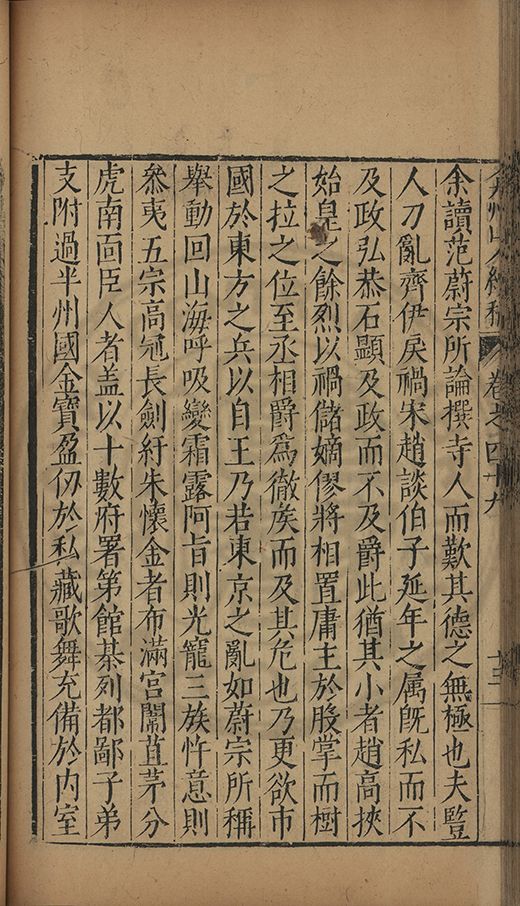 弇州山人續稿 卷之四十九 十三
余讀范蔚宗所論撰寺人而歎其德之無極也夫豎
人刀亂齊伊戾禍宋趙談伯子延年之属旣私而不
及政弘恭石顯及政而不及爵此猶其小者趙高挾
始皇之餘烈以禍儲嫡僇將相置庸主於股掌而樹
之拉之位至丞相爵爲徹矦而及其危也乃更欲市
國於東方之兵以自王乃若東京之亂如蔚宗所稱
舉動回山海呼吸變霜露阿旨則光寵三族忤意則
叅夷五宗高冠長劍紆朱懷金者布滿宮闈苴茅分
虎南面臣人者盖以十數府署第館棊列都鄙子弟
支附過半州國金寶盈仞於私藏歌舞充備於内室